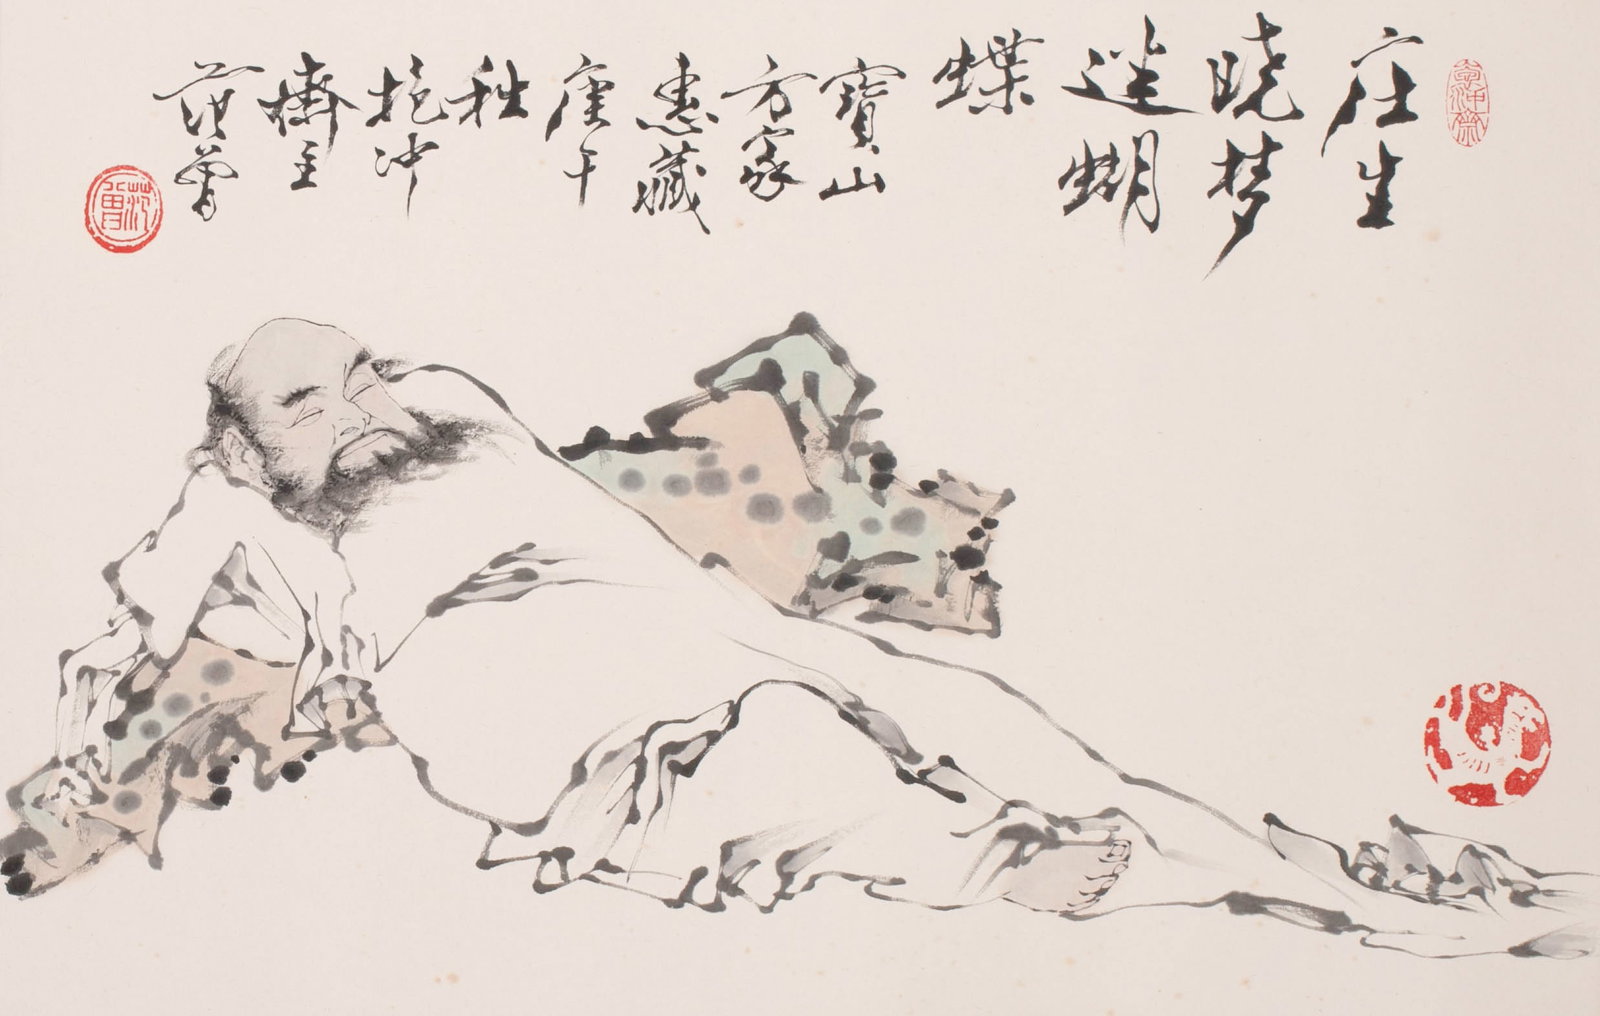 抱冲斋
庄生
晓梦
迷蝴
蝶
寶山
方家
惠藏
庚午
秋
抱冲
齋主
范曾
范曾